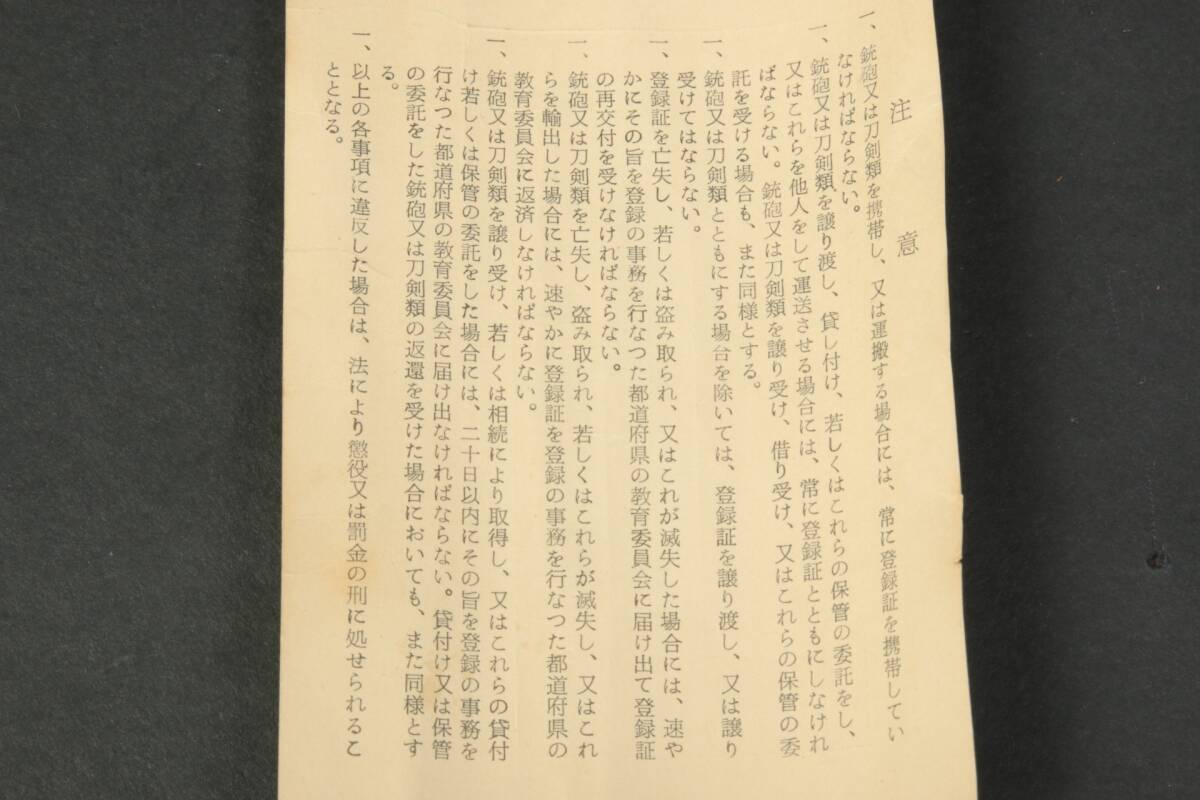 注意
一、銃砲又は刀剣類を携帯し、又は運搬する場合には、常に登録証を携帯してい
なければならない。
一、銃砲又は刀剣類を譲り渡し、貸し付け、若しくはこれらの保管の委託をし、
又はこれらを他人をして運送させる場合には、常に登録証とともにしなけれ
ばならない。銃砲又は刀剣類を譲り受け、借り受け、又はこれらの保管の委
託を受ける場合も、また同様とする。
一、銃砲又は刀剣類とともにする場合を除いては、登録証を譲り渡し、又は譲り
受けてはならない。
一、登録証を亡失し、若しくは盗み取られ、又はこれが滅失した場合には、速や
かにその旨を登録の事務を行なつた都道府県の教育委員会に届け出て登録証
の再交付を受けなければならない。
一、銃砲又は刀剣類を亡失し、盗み取られ、若しくはこれらが滅失し、又はこれ
らを輸出した場合には、速やかに登録証を登録の事務を行なつた都道府県の
教育委員会に返済しなければならない。
一、銃砲又は刀剣類を譲り受け、若しくは相続により取得し、又はこれらの貸付
け若しくは保管の委託をした場合には、二十日以内にその旨を登録の事務を
行なつた都道府県の教育委員会に届け出なければならない。貸付け又は保管
の委託をした銃砲又は刀剣類の返還を受けた場合においても、また同様とす
る。
一、以上の各事項に違反した場合は、法により懲役又は罰金の刑に処せられるこ
ととなる。